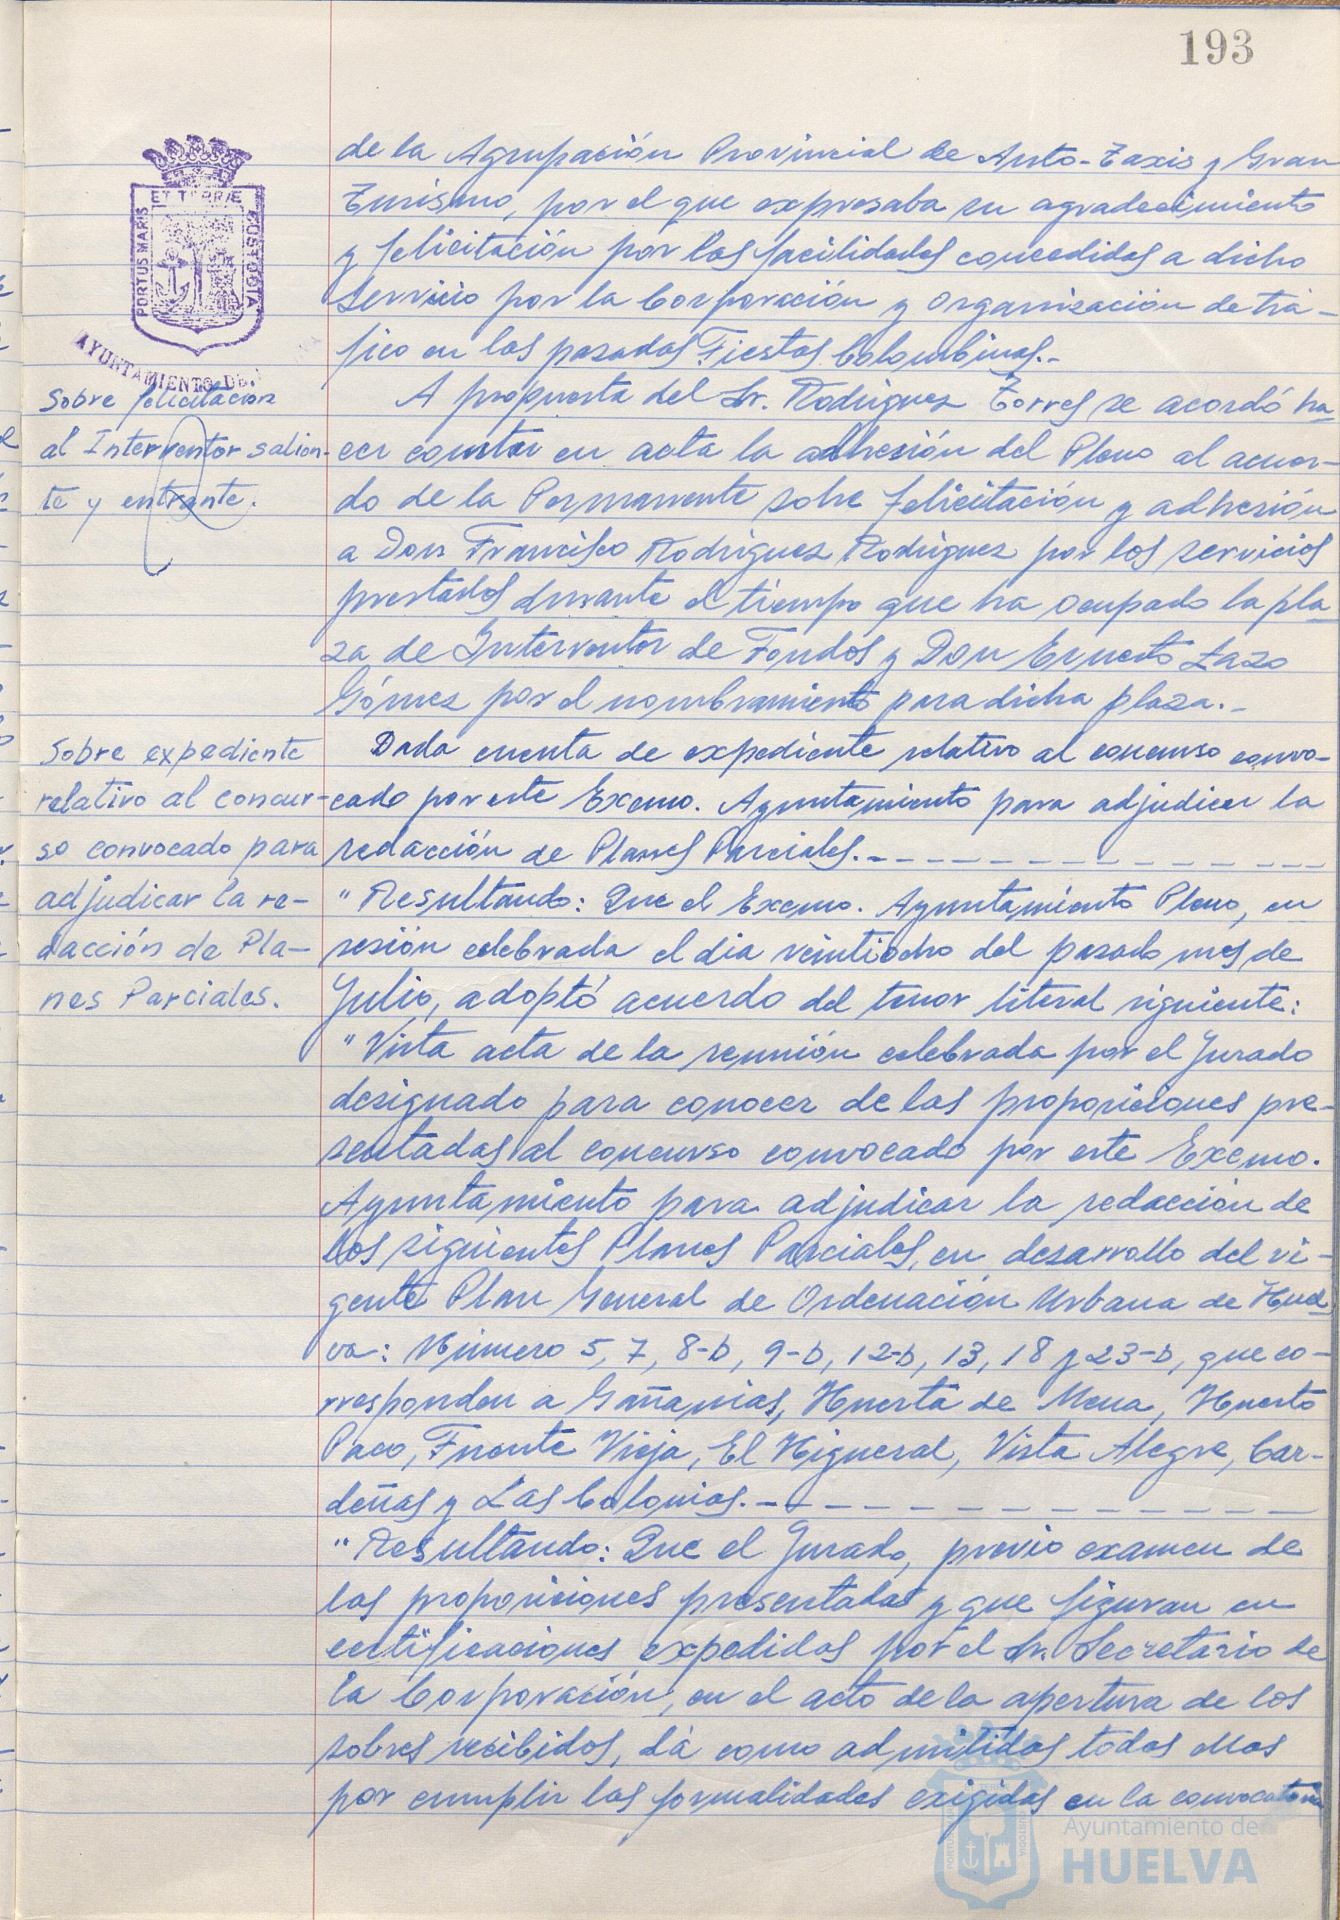 193
ET TERRÆ
PORTUS MARIS
CUSTODIA
AYUNTAMIENTO DE
de la Agrupación Provincial de Auto-Taxis y Gran
Turismo, por el que expresaba su agradecimiento
y felicitación por las facilidades concedidas a dicho
Servicio por la Corporación y organización de trá-
fico en las pasadas Fiestas Colombinas.-
Sobre felicitacion
al Interventor salien-
te y entrante.
A propuesta del Sr. Rodriguez Torres se acordó ha-
cer constar en acta la adhesión del Pleno al acuer-
do de la Permanente sobre felicitación y adhesión
a Don Francisco Rodriguez Rodriguez por los servicios
prestados durante el tiempo que ha ocupado la pla-
za de Interventor de Fondos y Don Ernesto Lazo
Gómez por el nombramiento para dicha plaza.-
Sobre expediente
relativo al concur-
so convocado para
adjudicar la re-
dacción de Pla-
nes Parciales.
Dada cuenta de expediente relativo al concurso convo-
cado por este Excmo. Ayuntamiento para adjudicar la
redacción de Planes Parciales.-
"Resultando: Que el Excmo. Ayuntamiento Pleno, en
sesión celebrada el dia veintiocho del pasado mes de
Julio, adoptó acuerdo del tenor literal siguiente:
"Vista acta de la reunión celebrada por el Jurado
designado para conocer de las proposiciones pre-
sentadas al concurso convocado por este Excmo.
Ayuntamiento para adjudicar la redacción de
los siguientes Planes Parciales, en desarrollo del vi-
gente Plan General de Ordenación Urbana de Huel-
va: Número 5, 7, 8-b, 9-b, 12-b, 13, 18 y 23-b, que co-
rresponden a Gañanias, Huerta de Mena, Huerto
Paco, Fuente Vieja, El Higueral, Vista Alegre, Car-
deñas y Las Colonias.-
"Resultando: Que el Jurado, previo examen de
las proposiciones presentadas y que figuran en
certificaciones expedidas por el Sr. Secretario de
la Corporación, en el acto de la apertura de los
sobres recibidos, dá como admitidas todas ellas
por cumplir las formalidades exigidas en la convocatoria
Ayuntamiento de
HUELVA